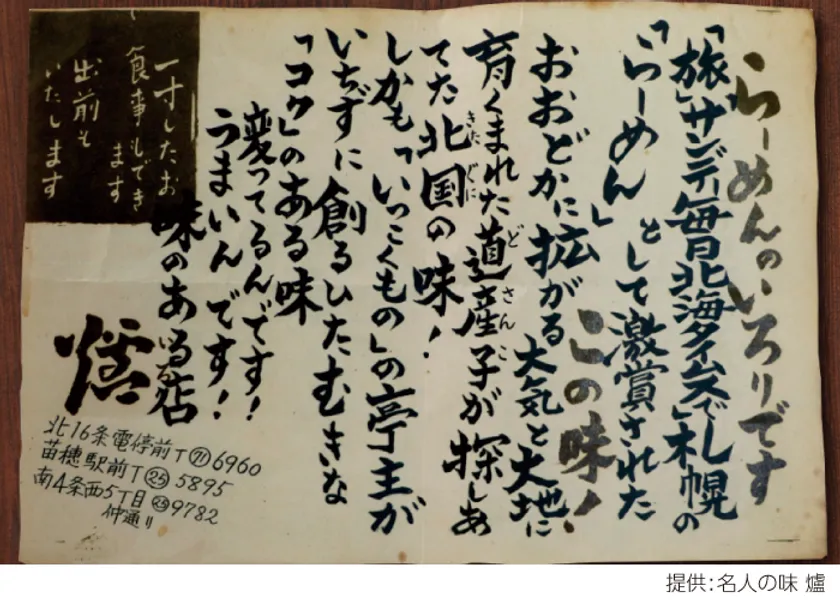 らーめんのいろりです
「旅」サンデー毎日北海タイムスで札幌の
「らーめん」として激賞された
この味！
おおどかに拡がる大気と大地に
育くまれた道産子が探しあ
てた北国の味！
しかも「いっこくもの」の亭主が
いちずに創るひたむきな
「コク」のある味
変ってるんです！
うまいんです！
味のある店
爐
北16条電停前T(71)6960
苗穂駅前T(25)5895
南4条西5丁目(23)9782
仲通り
一寸したお
食事もでき
ます
出前も
いたします
提供：名人の味 爐